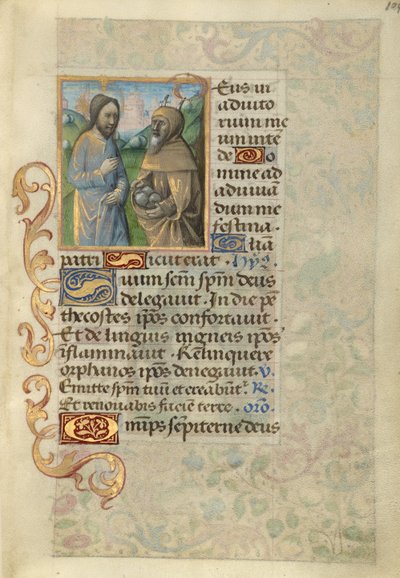 Eus in
adiuto
rium me
um inte
de Do
mine ad
adiuuā
dum me
festina
Glīa
patri Sicut erat · Hỹ9
Suum scm̄ spm̄ deus
delegauit · In die pē
thecostes ip̄os confortauit ·
Et de linguis igneis ip̄os
īflammauit · Relinquere
orphanos ip̄os denegauit · v
Emitte spm̄ tuū et creabunt̄ · Re ·
Et renouabis faciem terre · or̄o ·
Omīps sēpiterne deus